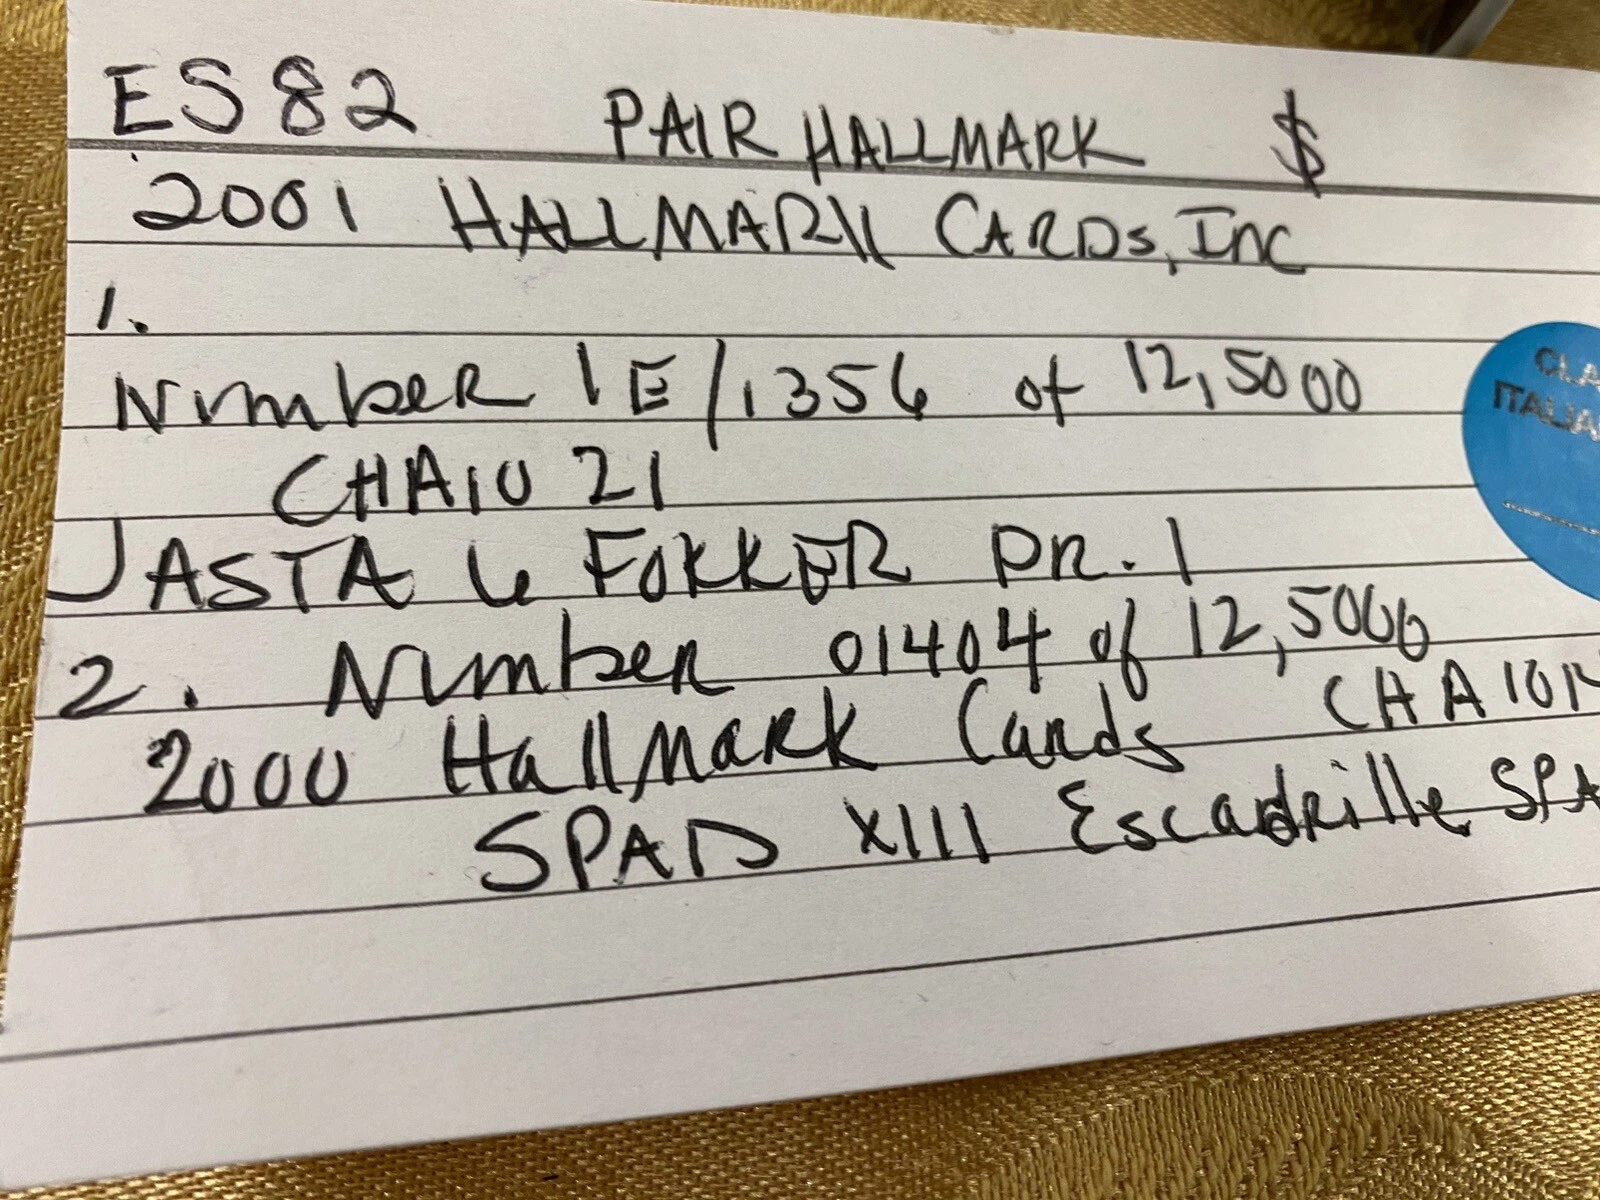 ES82 PAIR HALLMARK $
2001 HALLMARK CARDS, Inc
1.
Number 1E/1356 of 12,5000
CHA10 21
JASTA 6 FOKKER DR. 1
2. Number 01404 of 12,5000
2000 Hallmark Cards CHA101
SPAD XIII Escadrille SPA
CLA
ITALIA